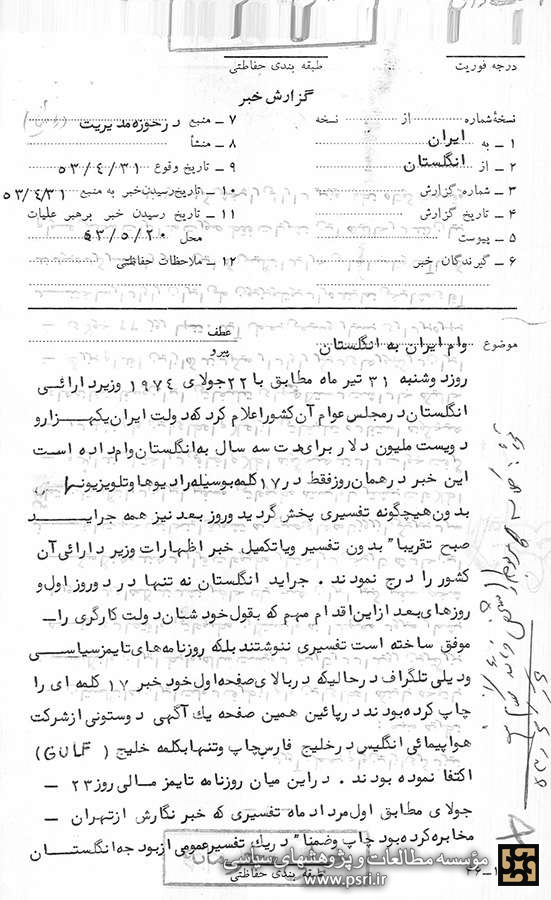 درجه فوریت
طبقه بندی حفاظتی
گزارش خبر
نسخهٔ شماره از نسخه
۱ ـ به ایران
۲ ـ از انگلستان
۳ ـ شماره گزارش
۴ ـ تاریخ گزارش
۵ ـ پیوست
۶ ـ گیرندگان خبر
۷ ـ منبع در حوزه مدیریت
۸ ـ منشأ
۹ ـ تاریخ وقوع ۵۳/۴/۳۱
۱۰ ـ تاریخ رسیدن خبر به منبع ۵۳/۴/۳۱
۱۱ ـ تاریخ رسیدن خبر برهبر عملیات
محل ۴۳/۵/۲۰
۱۲ ـ ملاحظات حفاظتی
موضوع وام ایران به انگلستان
عطف
پیرو
روز دوشنبه ۳۱ تیر ماه مطابق با ۲۲ جولای ۱۹۷۴ وزیر دارائی
انگلستان در مجلس عوام آن کشور اعلام کرد که دولت ایران یکهزار و
دویست ملیون دلار برای مدت سه سال به انگلستان وام داده است
این خبر در همان روز فقط در ۱۷ کلمه بوسیله رادیوها و تلویزیونها
بدون هیچگونه تفسیری پخش گردید و روز بعد نیز همه جراید
صبح تقریبا" بدون تفسیر ویا تکمیل خبر اظهارات وزیر دارائی آن
کشور را درج نمودند . جراید انگلستان نه تنها در دو روز اول و
روزهای بعد از این اقدام مهم که بقول خودشان دولت کارگری را ـ
موفق ساخته است تفسیری ننوشتند بلکه روزنامه های تایمز سیاسی
و دیلی تلگراف در حالیکه در بالای صفحه اول خود خبر ۱۷ کلمه ای را
چاپ کرده بودند در پائین همین صفحه یك آگهی دو ستونی از شرکت
هواپیمائی انگلیس در خلیج فارس چاپ و تنها بکلمه خلیج ( GULF )
اکتفا نموده بودند . در این میان روزنامه تایمز مالی روز ۲۳ ـ
جولای مطابق اول مرداد ماه تفسیری که خبرنگارش از تهران ـ
مخابره کرده بود چاپ و ضمنا" در یك تفسیر عمومی از بودجه انگلستان
طبقه بندی حفاظتی
مؤسسه مطالعات و پژوهشهای سیاسی
www.psri.ir